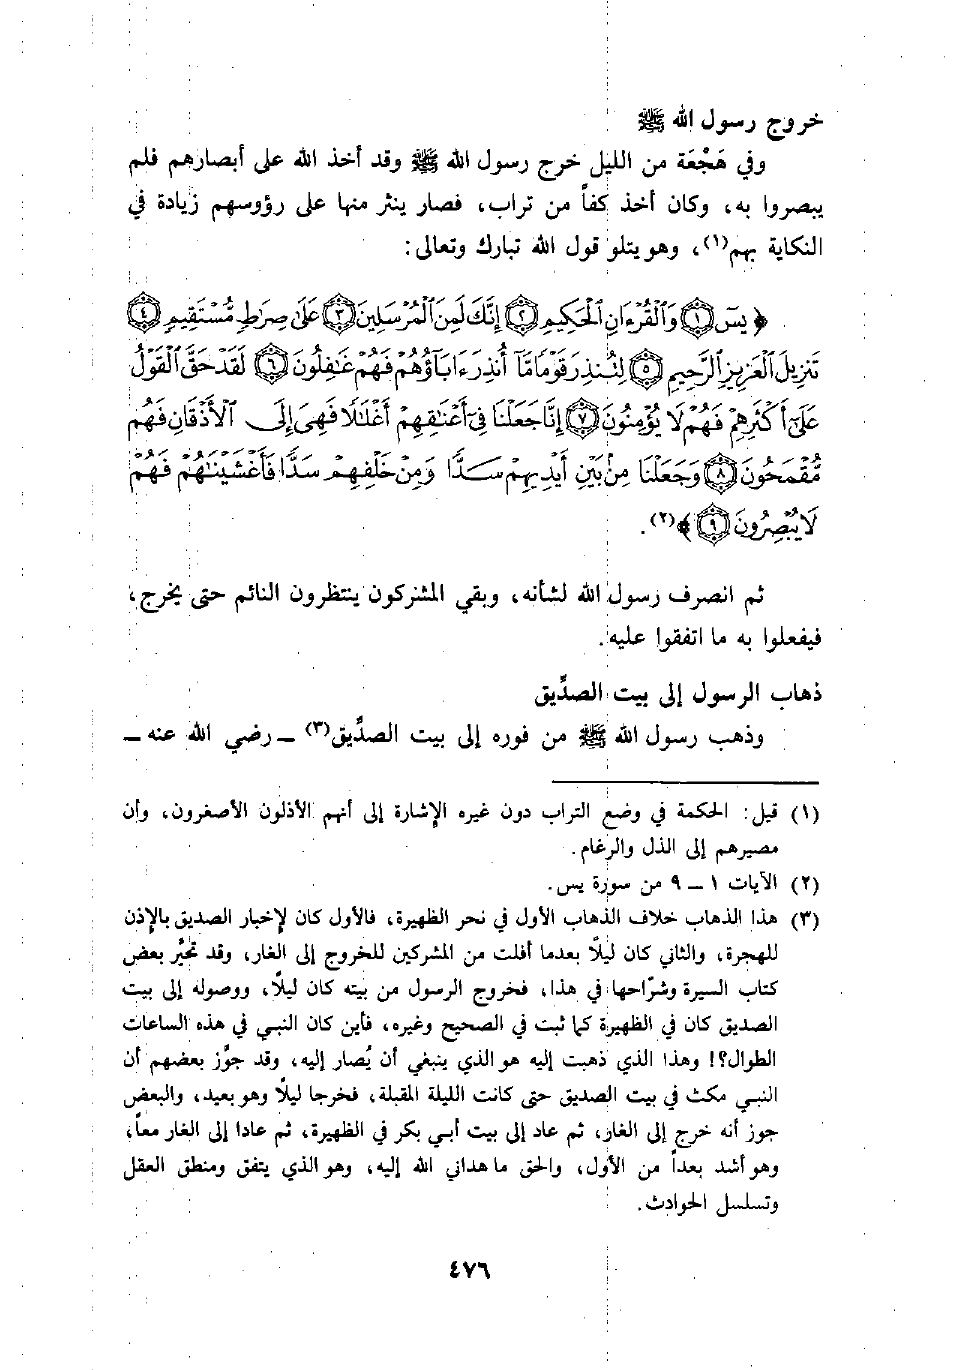 خروج رسول الله ﷺ
وفي هَجْعَة من الليل خرج رسول الله ﷺ وقد أخذ الله على أبصارهم فلم
يبصروا به، وكان أخذ كفاً من تراب، فصار ينثر منها على رؤوسهم زيادة في
النكاية بهم(١)، وهو يتلو قول الله تبارك وتعالى:
﴿ يسٓ ١ وَٱلْقُرْءَانِ ٱلْحَكِيمِ ٢ إِنَّكَ لَمِنَ ٱلْمُرْسَلِينَ ٣ عَلَىٰ صِرَٰطٍ مُّسْتَقِيمٍ ٤
تَنزِيلَ ٱلْعَزِيزِ ٱلرَّحِيمِ ٥ لِتُنذِرَ قَوْمًا مَّآ أُنذِرَ ءَابَآؤُهُمْ فَهُمْ غَٰفِلُونَ ٦ لَقَدْ حَقَّ ٱلْقَوْلُ
عَلَىٰٓ أَكْثَرِهِمْ فَهُمْ لَا يُؤْمِنُونَ ٧ إِنَّا جَعَلْنَا فِىٓ أَعْنَٰقِهِمْ أَغْلَٰلًا فَهِىَ إِلَى ٱلْأَذْقَانِ فَهُم
مُّقْمَحُونَ ٨ وَجَعَلْنَا مِنۢ بَيْنِ أَيْدِيهِمْ سَدًّا وَمِنْ خَلْفِهِمْ سَدًّا فَأَغْشَيْنَٰهُمْ فَهُمْ
لَا يُبْصِرُونَ ٩ ﴾(٢).
ثم انصرف رسول الله لشأنه، وبقي المشركون ينتظرون النائم حتى يخرج،
فيفعلوا به ما اتفقوا عليه.
ذهاب الرسول إلى بيت الصدِّيق
وذهب رسول الله ﷺ من فوره إلى بيت الصدِّيق(٣) ــ رضي الله عنه ــ
(١) قيل: الحكمة في وضع التراب دون غيره الإشارة إلى أنهم الأذلون الأصغرون، وأن
مصيرهم إلى الذل والرغام.
(٢) الآيات ١ ــ ٩ من سورة يس.
(٣) هذا الذهاب خلاف الذهاب الأول في نحر الظهيرة، فالأول كان لإخبار الصديق بالإذن
للهجرة، والثاني كان ليلاً بعدما أفلت من المشركين للخروج إلى الغار، وقد تحيَّر بعض
كتاب السيرة وشرّاحها في هذا، فخروج الرسول من بيته كان ليلاً، ووصوله إلى بيت
الصديق كان في الظهيرة كما ثبت في الصحيح وغيره، فأين كان النبي في هذه الساعات
الطوال؟! وهذا الذي ذهبت إليه هو الذي ينبغي أن يُصار إليه، وقد جوَّز بعضهم أن
النبـي مكث في بيت الصديق حتى كانت الليلة المقبلة، فخرجا ليلاً وهو بعيد، والبعض
جوز أنه خرج إلى الغار، ثم عاد إلى بيت أبـي بكر في الظهيرة، ثم عادا إلى الغار معاً،
وهو أشد بعداً من الأول، والحق ما هداني الله إليه، وهو الذي يتفق ومنطق العقل
وتسلسل الحوادث.
٤٧٦